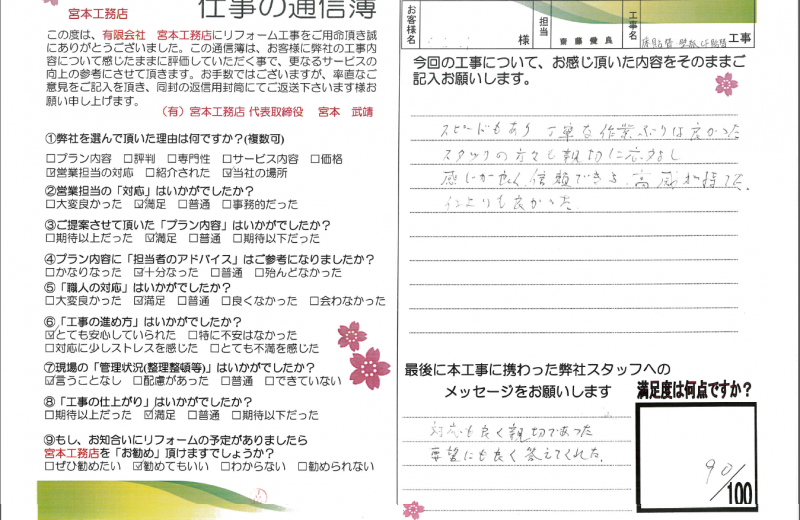 仕事の通信簿
宮本工務店
この度は、有限会社 宮本工務店にリフォーム工事をご用命頂き誠
にありがとうございました。この通信簿は、お客様に弊社の工事内
容について感じたままに評価していただく事で、更なるサービスの
向上の参考にさせて頂きます。お手数ではございますが、率直なご
意見をご記入を頂き、同封の返信用封筒にてご返送下さいます様お
願い申し上げます。
（有）宮本工務店 代表取締役 宮本 武靖
①弊社を選んで頂いた理由は何ですか？(複数可)
□プラン内容 □評判 □専門性 □サービス内容 □価格
☑営業担当の対応 □紹介された ☑当社の場所
②営業担当の「対応」はいかがでしたか？
□大変良かった ☑満足 □普通 □事務的だった
③ご提案させて頂いた「プラン内容」はいかがでしたか？
□期待以上だった ☑満足 □普通 □期待以下だった
④プラン内容に「担当者のアドバイス」はご参考になりましたか？
□かなりなった ☑十分なった □普通 □殆んどなかった
⑤「職人の対応」はいかがでしたか？
□大変良かった ☑満足 □普通 □良くなかった □会わなかった
⑥「工事の進め方」はいかがでしたか？
☑とても安心していられた □特に不安はなかった
□対応に少しストレスを感じた □とても不満を感じた
⑦現場の「管理状況(整理整頓等)」はいかがでしたか？
☑言うことなし □配慮があった □普通 □できていない
⑧「工事の仕上がり」はいかがでしたか？
□期待以上だった ☑満足 □普通 □期待以下だった
⑨もし、お知合いにリフォームの予定がありましたら
宮本工務店を「お勧め」頂けますでしょうか？
□ぜひ勧めたい ☑勧めてもいい □わからない □勧められない
お客様名 様 担当 齋藤 工事名 工事
今回の工事について、お感じ頂いた内容をそのままご
記入お願いします。
スピードもあり 丁寧な作業ぶりは良かった
スタッフの方々も親切に応対し
感じが良く、信頼できる、高感が持てた
仕上りも良かった
最後に本工事に携わった弊社スタッフへの
メッセージをお願いします
対応も良く親切であった
要望にも良く答えてくれた。
満足度は何点ですか？
90/100